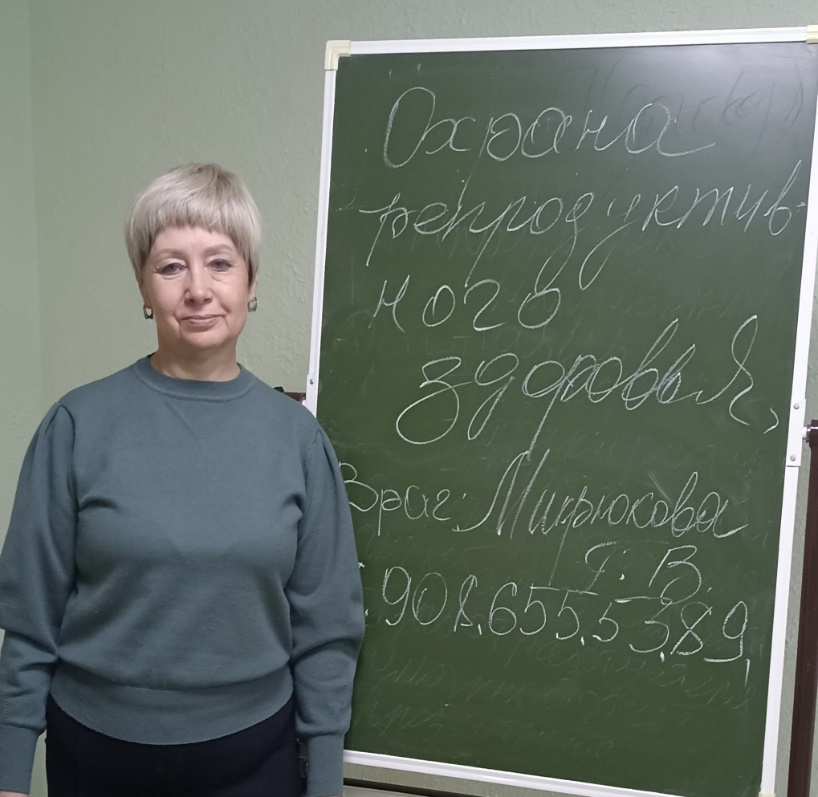 Охрана
репродуктив-
ного
здоровья,
Врач: Мирюкова
Г. В.
.908.655.55.89,